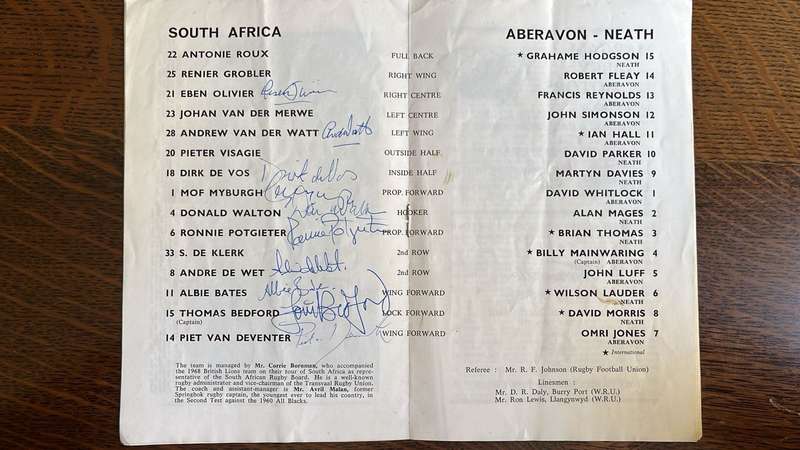 SOUTH AFRICA
22 ANTONIE ROUX FULL BACK
25 RENIER GROBLER RIGHT WING
21 EBEN OLIVIER RIGHT CENTRE
23 JOHAN VAN DER MERWE LEFT CENTRE
28 ANDREW VAN DER WATT LEFT WING
20 PIETER VISAGIE OUTSIDE HALF
18 DIRK DE VOS Dirk de Vos INSIDE HALF
1 MOF MYBURGH PROP. FORWARD
4 DONALD WALTON HOOKER
6 RONNIE POTGIETER Ronnie Potgieter PROP. FORWARD
33 S. DE KLERK 2nd ROW
8 ANDRE DE WET 2nd ROW
11 ALBIE BATES Albie Bates WING FORWARD
15 THOMAS BEDFORD Tom Bedford LOCK FORWARD
(Captain)
14 PIET VAN DEVENTER WING FORWARD
The team is managed by Mr. Corrie Bornman, who accompanied
the 1968 British Lions team on their tour of South Africa as repre-
sentative of the South African Rugby Board. He is a well-known
rugby administrator and vice-chairman of the Transvaal Rugby Union.
The coach and assistant-manager is Mr. Avril Malan, former
Springbok rugby captain, the youngest ever to lead his country, in
the Second Test against the 1960 All Blacks.
ABERAVON - NEATH
★ GRAHAME HODGSON 15
NEATH
ROBERT FLEAY 14
ABERAVON
FRANCIS REYNOLDS 13
ABERAVON
JOHN SIMONSON 12
ABERAVON
★ IAN HALL 11
ABERAVON
DAVID PARKER 10
NEATH
MARTYN DAVIES 9
NEATH
DAVID WHITLOCK 1
ABERAVON
ALAN MAGES 2
NEATH
★ BRIAN THOMAS 3
NEATH
★ BILLY MAINWARING 4
(Captain) ABERAVON
JOHN LUFF 5
ABERAVON
★ WILSON LAUDER 6
NEATH
★ DAVID MORRIS 8
NEATH
OMRI JONES 7
ABERAVON
★ International
Referee : Mr. R. F. Johnson (Rugby Football Union)
Linesmen :
Mr. D. R. Daly, Burry Port (W.R.U.)
Mr. Ron Lewis, Llangynwyd (W.R.U.)